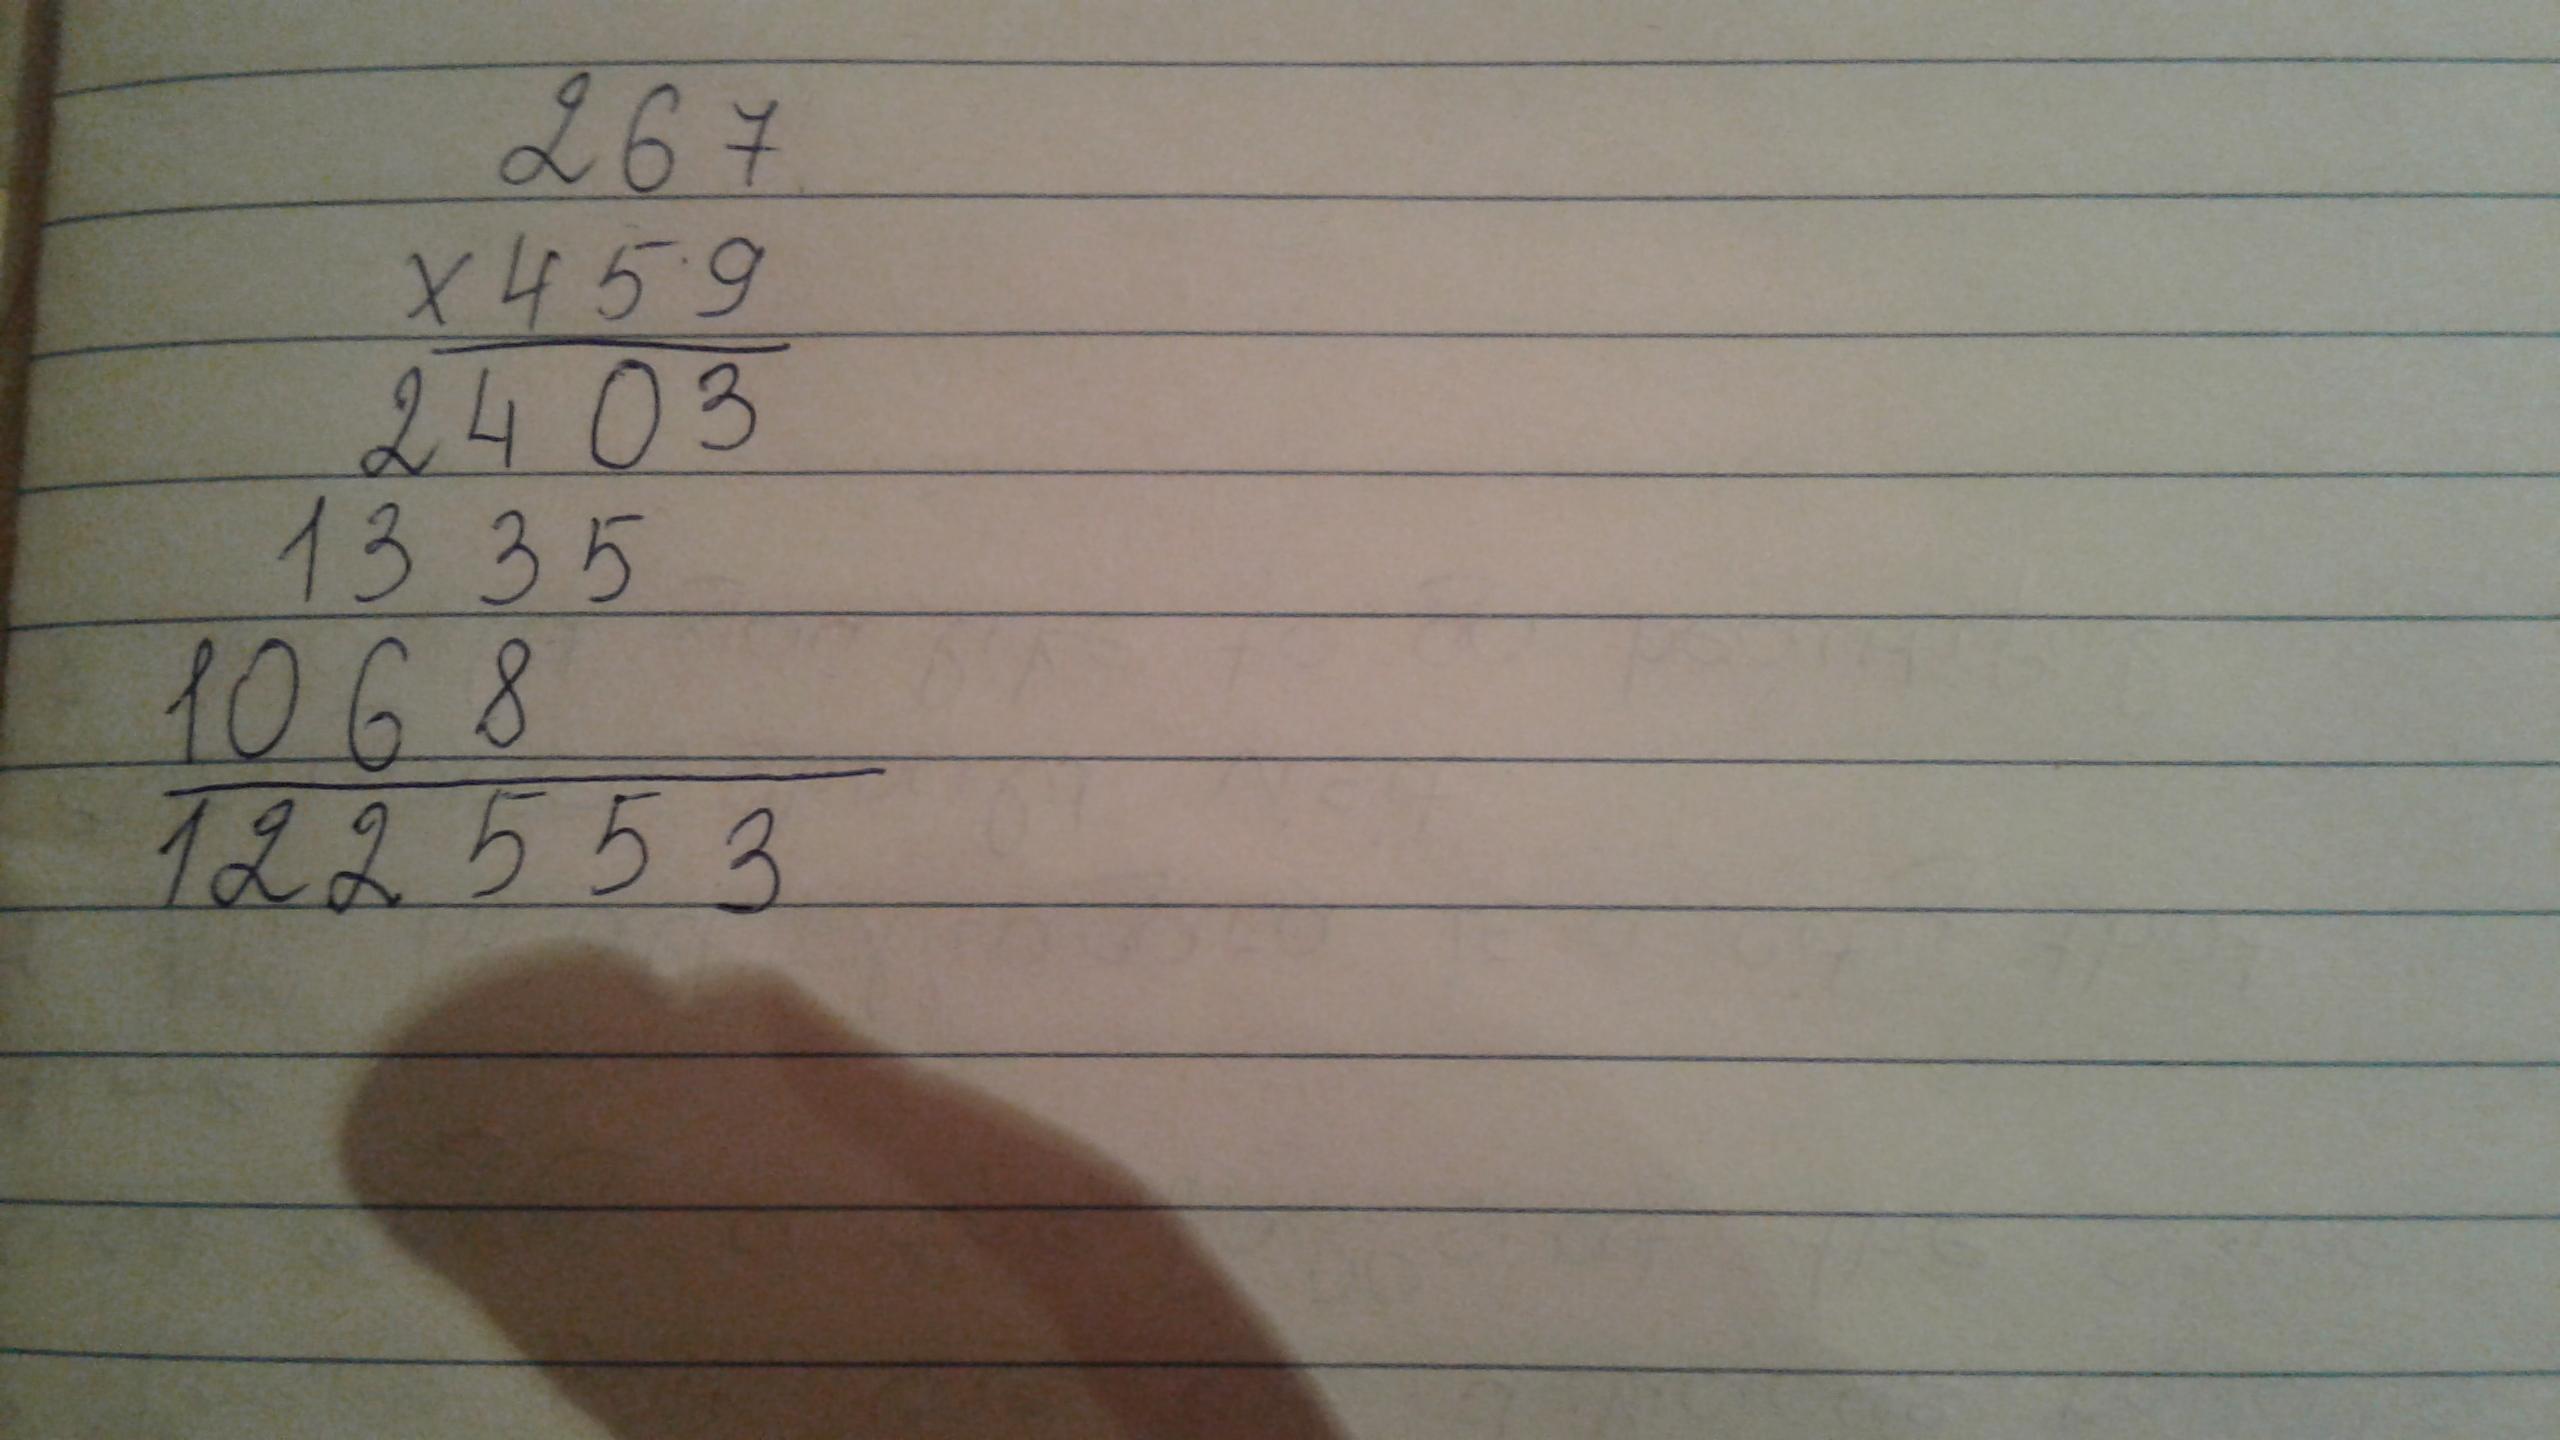 267
x459
2403
1335
1068
122553